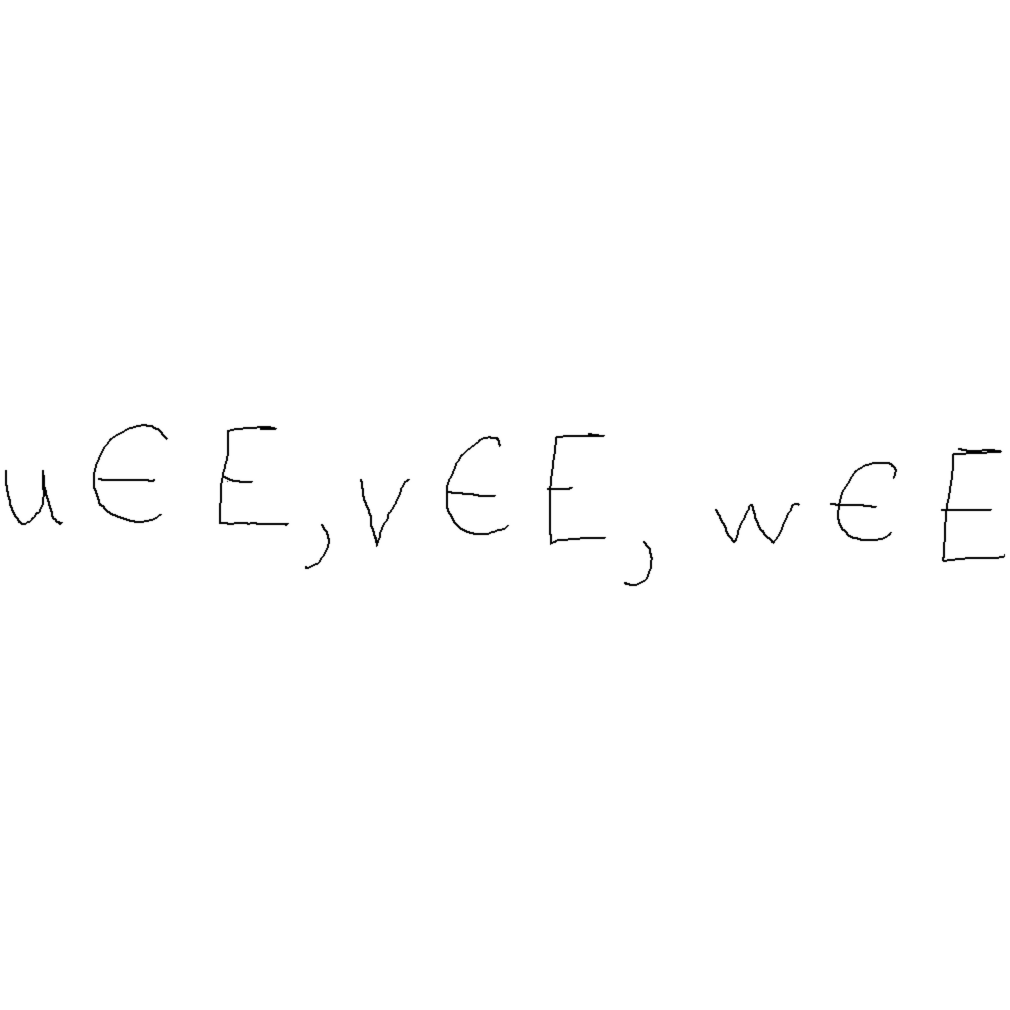 u ∈ E, v ∈ E, w ∈ E